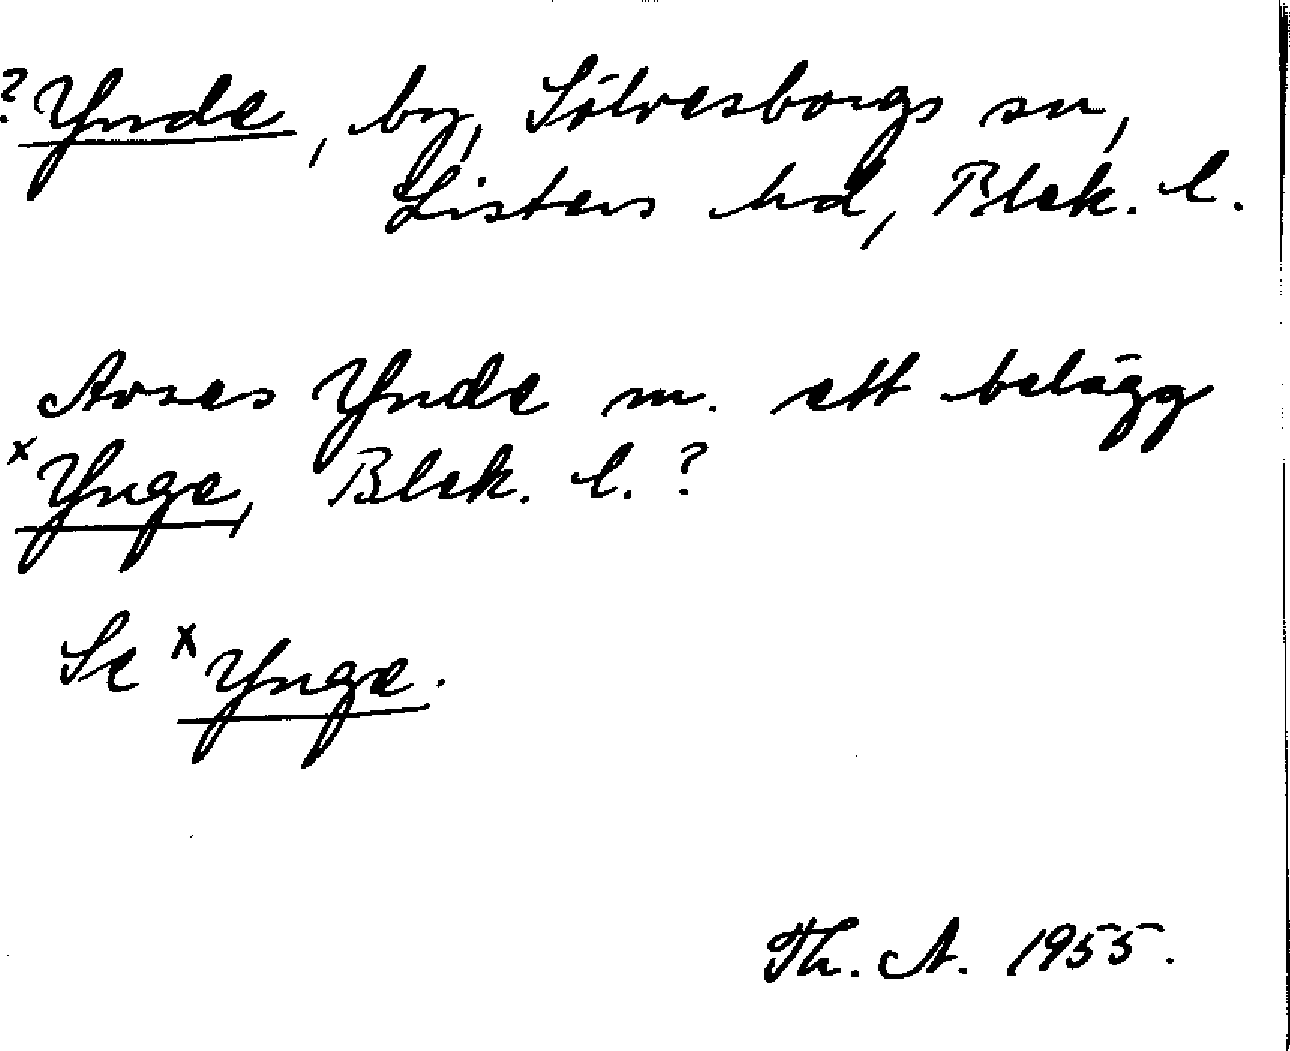 ? Ynde, by, Sölvesborgs sn,
Listers hd, Blek. l.
Avses Ynde m. ett belägg
x Ynge, Blek. l. ?
Se x Ynge.
Th. A. 1955.